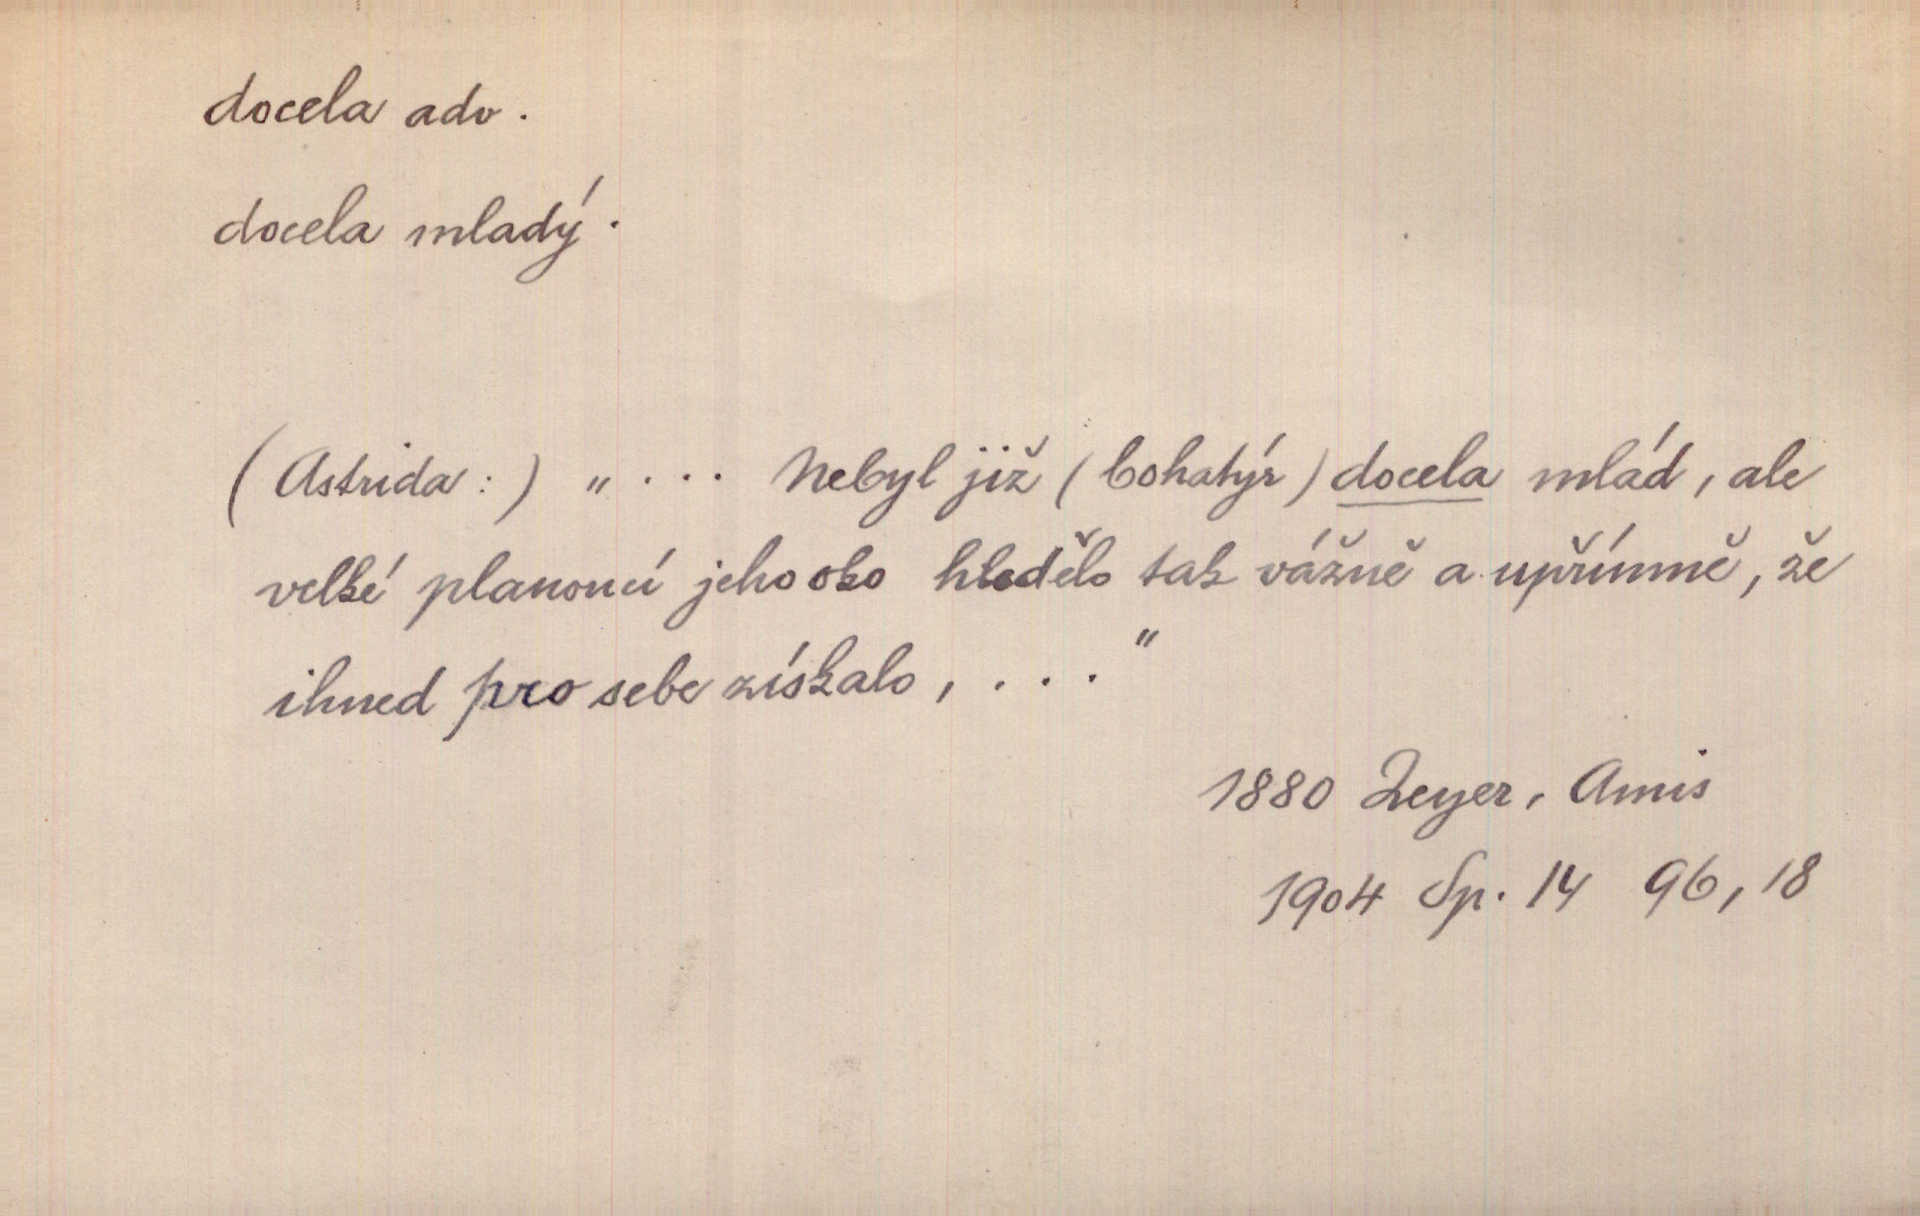 docela adv.
docela mladý.
(Astrida:) „... Nebyl již (bohatýr) docela mlád, ale
velké planoucí jeho oko hledělo tak vážně a upřímně, že
ihned pro sebe získalo, ..."
1880 Zeyer, Amis
1904 Sp. 14 96,18